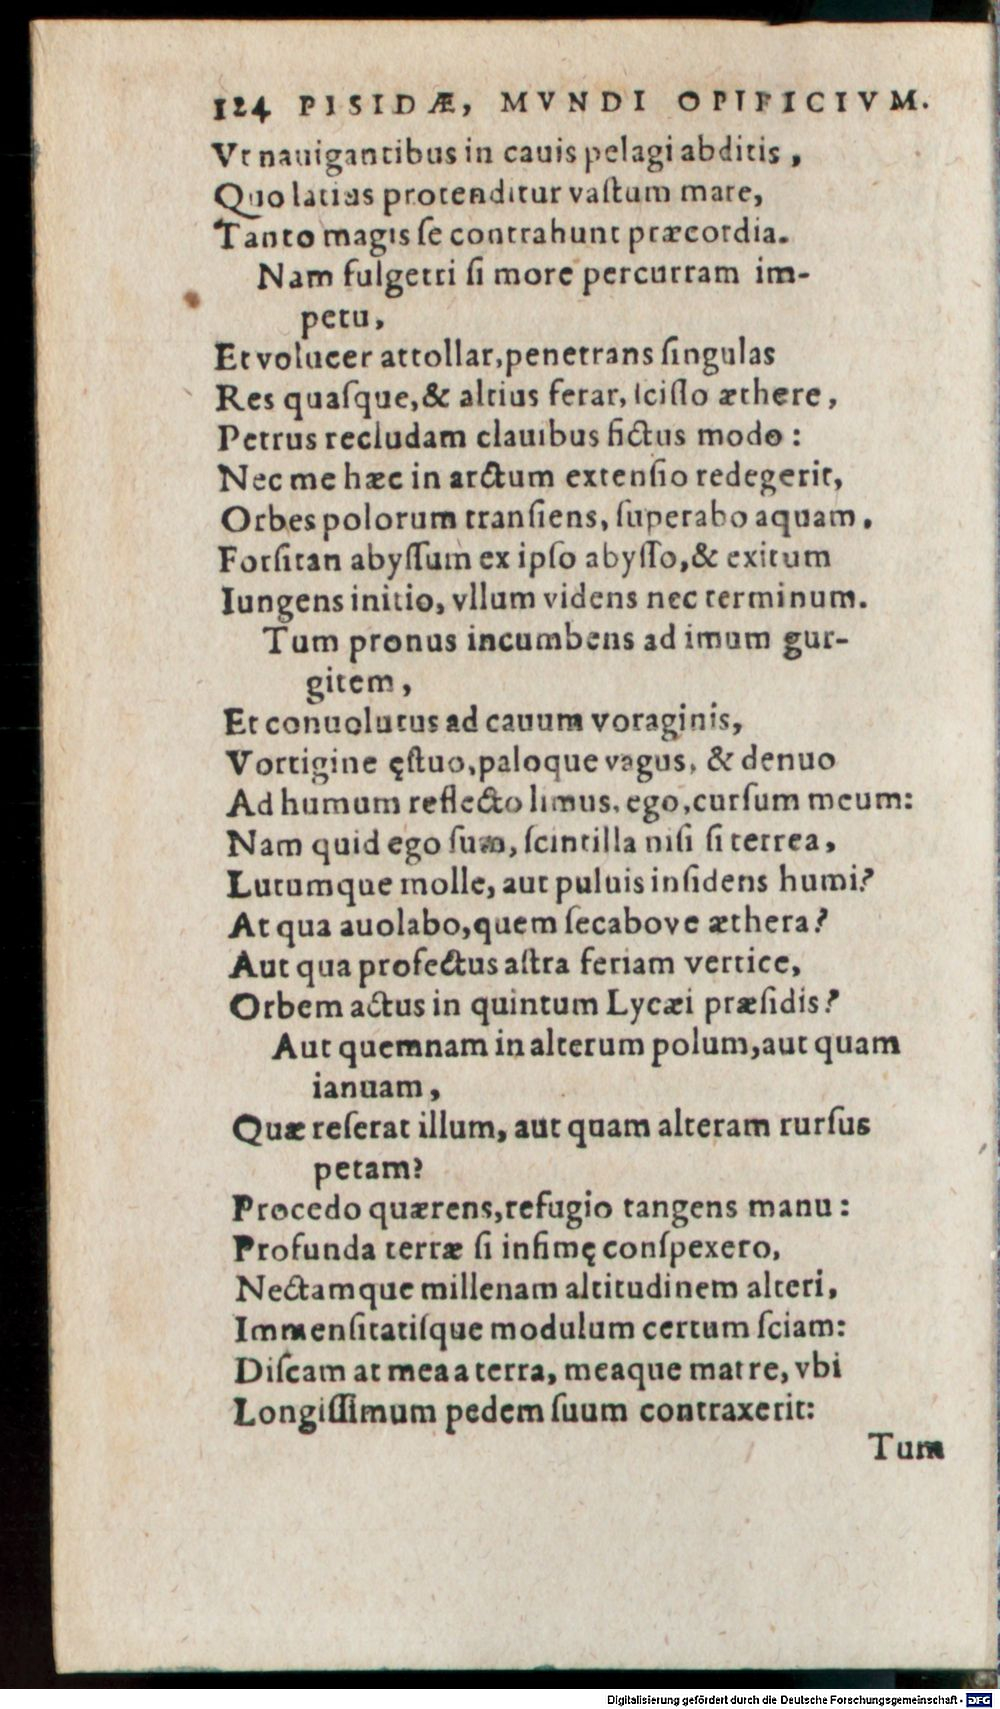 124 PISIDÆ, MVNDI OPIFICIVM.
Vt nauigantibus in cauis pelagi abditis,
Quo latius protenditur vaſtum mare,
Tanto magis ſe contrahunt præcordia.
Nam fulgetri ſi more percurram im-
petu,
Et volucer attollar, penetrans ſingulas
Res quaſque, & altius ferar, ſciſſo æthere,
Petrus recludam clauibus fictus modo:
Nec me hæc in arctum extenſio redegerit,
Orbes polorum tranſiens, ſuperabo aquam.
Forſitan abyſſum ex ipſo abyſſo, & exitum
Iungens initio, vllum videns nec terminum.
Tum pronus incumbens ad imum gur-
gitem,
Et conuolutus ad cauum voraginis,
Vortigine ęſtuo, paloque vagus, & denuo
Ad humum reflecto limus, ego, curſum meum:
Nam quid ego ſum, ſcintilla niſi ſi terrea,
Lutumque molle, aut puluis inſidens humi?
At qua auolabo, quem ſecabove æthera?
Aut qua profectus aſtra feriam vertice,
Orbem actus in quintum Lycæi præſidis?
Aut quemnam in alterum polum, aut quam
ianuam,
Quæ reſerat illum, aut quam alteram rurſus
petam?
Procedo quærens, refugio tangens manu:
Profunda terræ ſi infimę conſpexero,
Nectamque millenam altitudinem alteri,
Immenſitatiſque modulum certum ſciam:
Diſcam at mea a terra, meaque matre, vbi
Longiſſimum pedem ſuum contraxerit:
Tum
Digitalisierung gefördert durch die Deutsche Forschungsgemeinschaft - DFG